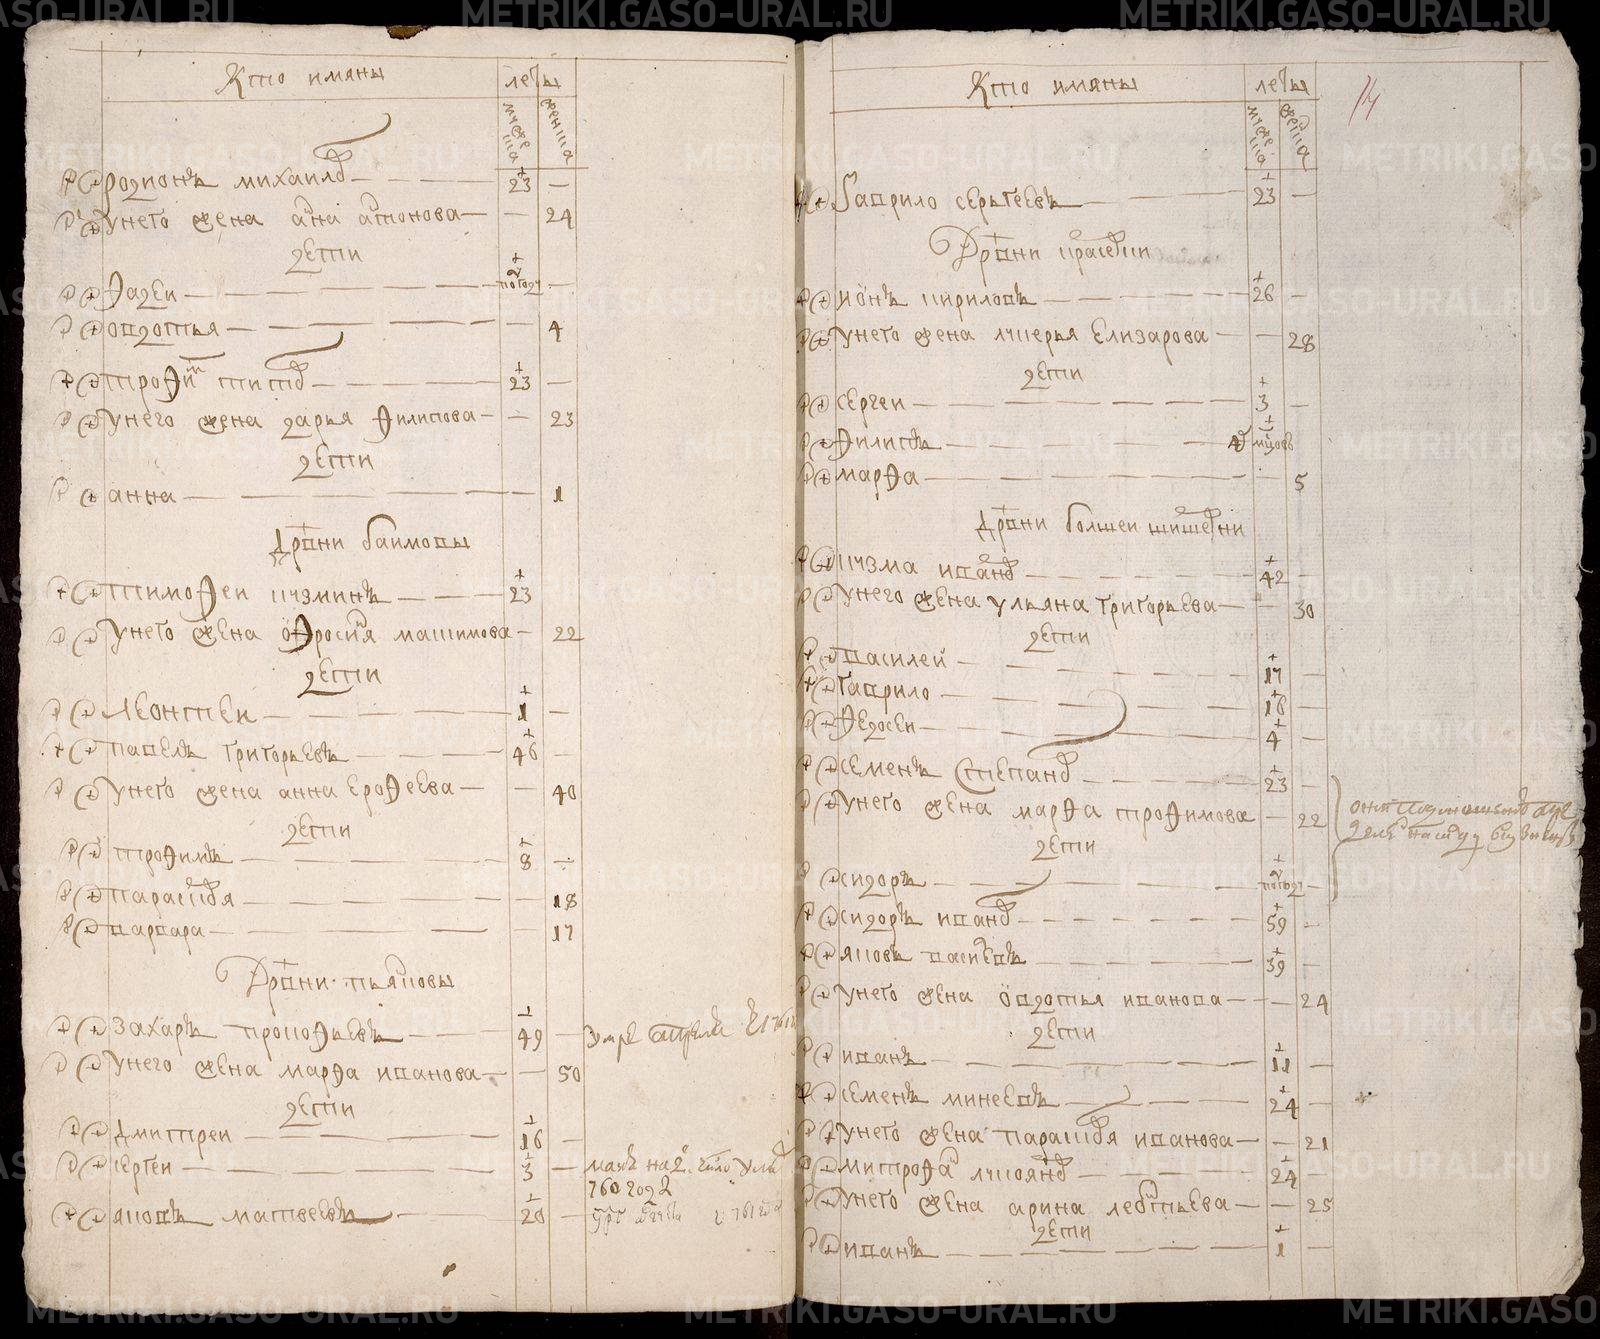 Кто имяны
леты
мужеска
женска
Родионъ михаилов 23
У него жена анна антонова 24
дети
Фадеи полгоду
овдотья 4
трофим титов 23
У него жена дарья филипова 23
дети
анна 1
Дрвни баимовы
тимофеи кузминъ 23
У него жена офросиния маѯимова 22
дети
леонтеи 1
павелъ григорьевъ 46
У него жена анна ерофеева 40
дети
трофимъ 8
парасковья 18
варвара 17
Дрвни пьянковы
захаръ прокофьевъ 49
У него жена марфа иванова 50
дети
дмитреи 16
сергеи 3
760 году
яковъ матвеевъ 20
Кто имяны
леты
мужеска
женска
14
Гаврило сергеевъ 23
Дрвни
ионъ кириловъ 26
У него жена лукерья Елизарова 28
дети
сергеи 3
филипъ
марфа 5
Дрвни болшеи
кузма иванов 42
У него жена ульяна григорьева 30
дети
василеи 17
гаврило 16
федосеи 4
семенъ Степанов 23
У него жена марфа трофимова 22
дети
сидоръ полгоду
сидоръ иванов 59
яковъ 39
У него жена овдотья иванова 24
дети
иванъ 11
семенъ минеевъ 24
У него жена парасковья иванова 21
митрофан лукоянов 24
У него жена арина леонтьева 25
дети
иванъ 1
METRIKI.GASO-URAL.RU